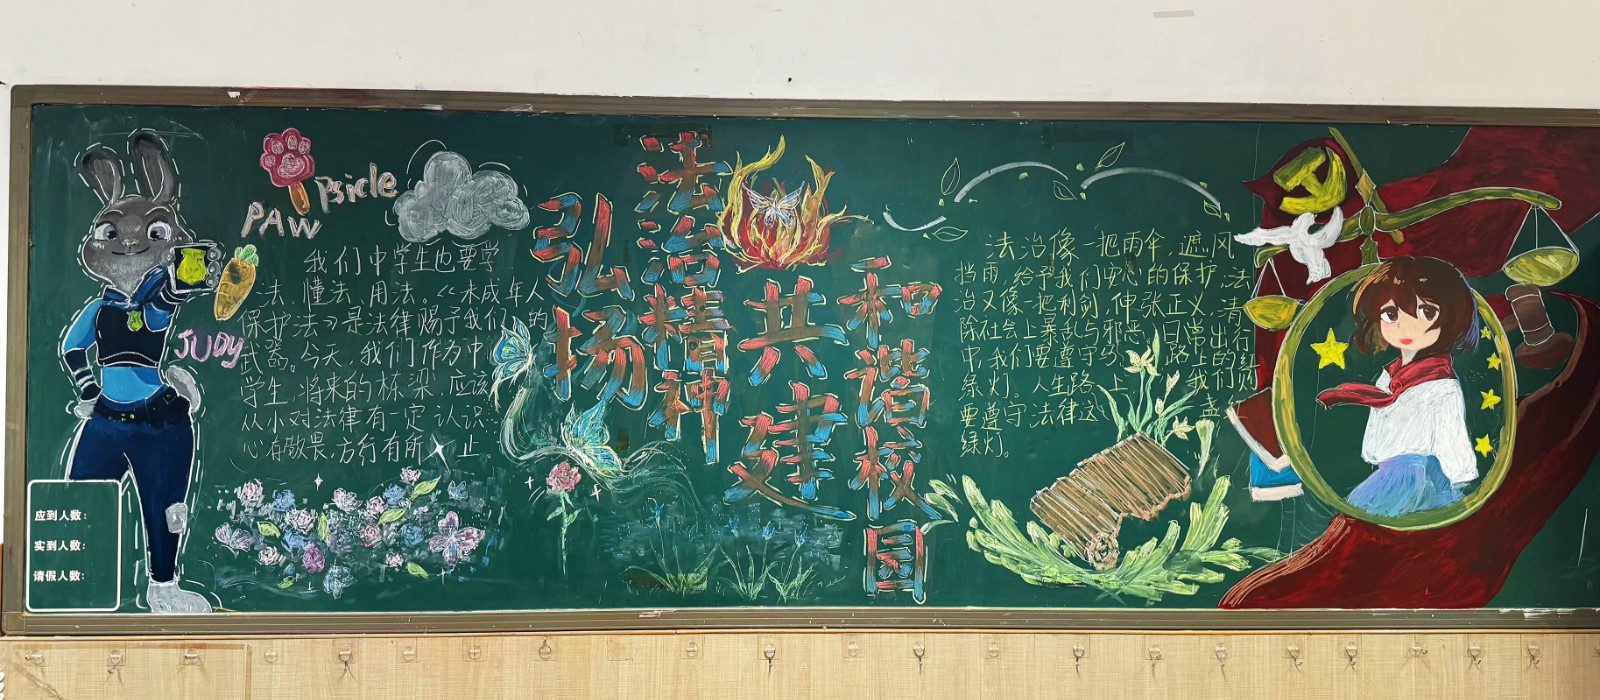 PAW
Psicle
JUDY
我们中学生也要学
法、懂法、用法。《未成年人
保护法》是法律赐予我们的
武器。今天,我们作为中
学生,将来的栋梁,应该
从小对法律有一定认识:
心有敬畏,方行有所止
应到人数:
实到人数:
请假人数:
弘扬
法治精神
共建
和谐校园
法治像一把雨伞,遮风
挡雨,给予我们安心的保护,法
治又像一把利剑,伸张正义,清
除社会上暴乱与邪恶。日常出行
中,我们要遵守马路上的红
绿灯。人生路上,我们则
要遵守法律这盏红
绿灯。